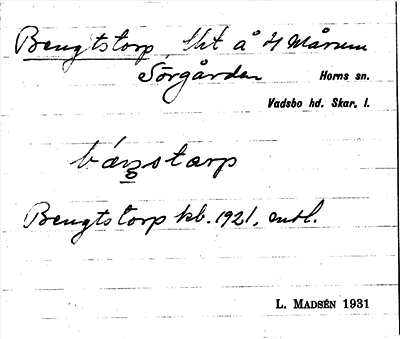 Bengtstorp, lht å 4 Mårum
Sörgården Horns sn.
Vadsbo hd. Skar. l.
báŋstarp
Bengtstorp kb. 1921. enl.
L. MADSÉN 1931